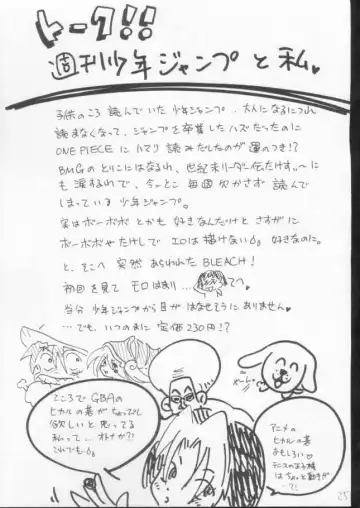 トーク!!
週刊少年ジャンプと私♥
子供のころ読んでいた少年ジャンプ、大人になるにつれ
読まなくなって、ジャンプを卒業したハズだったのに
ONE PIECEにハマり読みだしたのが運のつき!?
BMGのとりこにはなるわ、世紀末リーダー伝たけすぃ〜に
も涙するわで、今んとこ毎週欠かさず読んで
しまっている少年ジャンプ。
実はボーボボとかも好きなんだけどさすがに
ボーボボやたけしでエロは描けない 好きなのに。
と、そこへ突然あらわれたBLEACH!
初回を見てモロはまり… てへ。
当分少年ジャンプから目がはなせそうにありません♥
…でも、いつのまに定価230円!?
ところでGBAの
ヒカルの碁がちょっぴし
欲しいと思ってる
私って…オトナか?!
これでも
アニメの
ヒカルの碁
おもしろい♡
テニスの王子様
はちょっと動きが
…?!
25